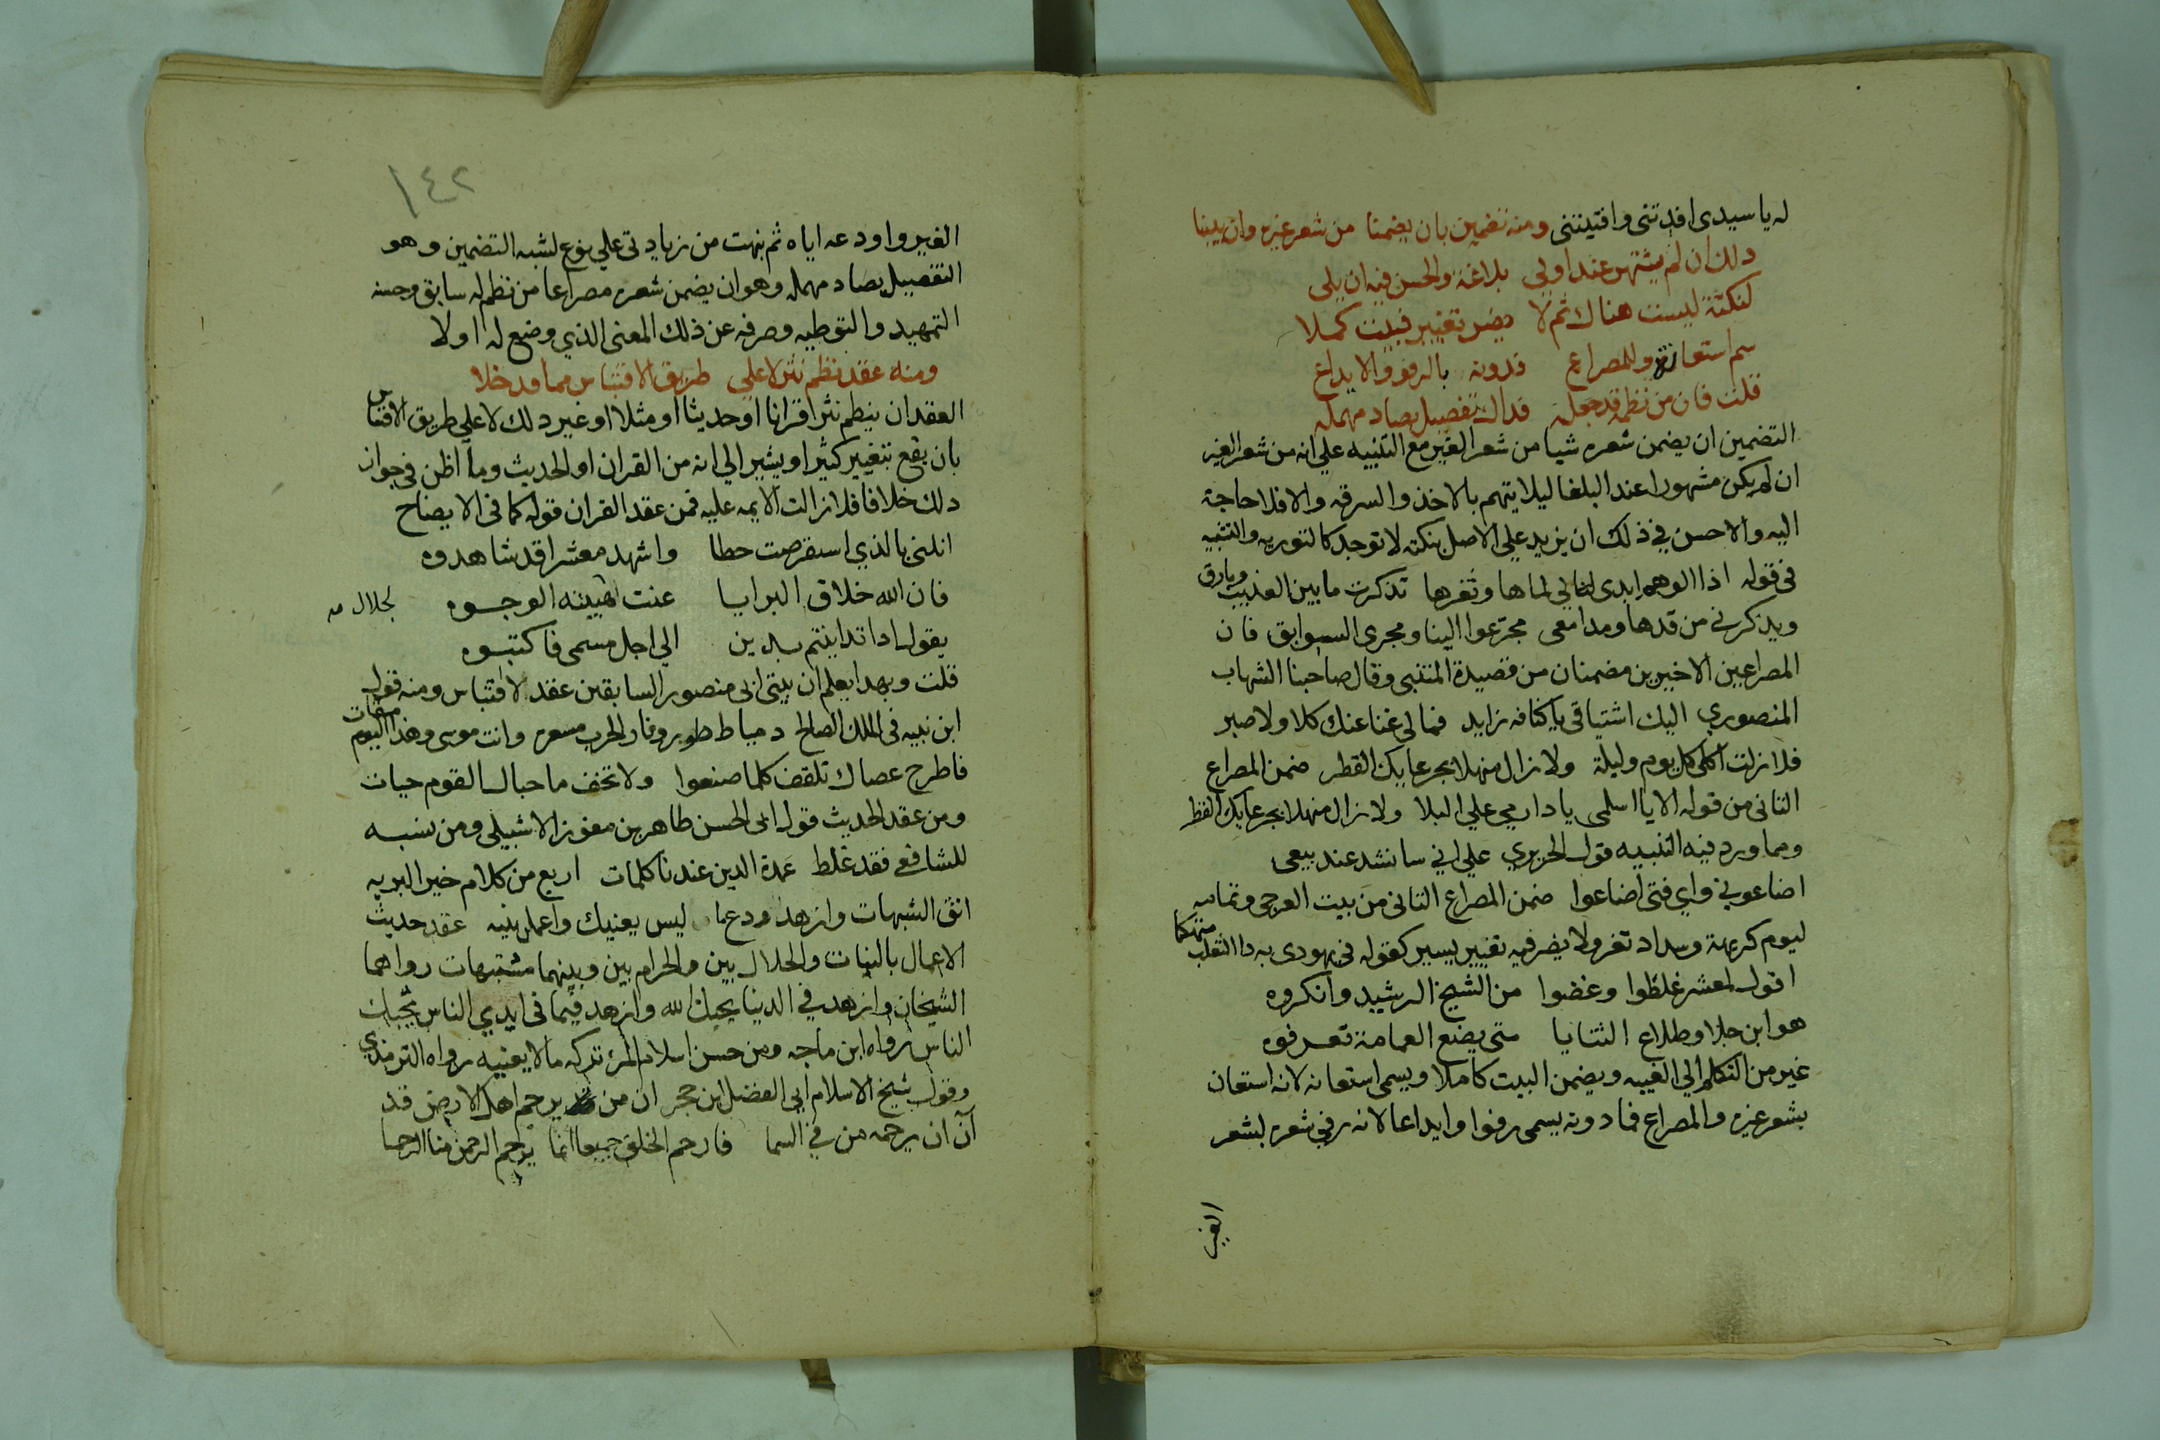 له يا سيدي افدتني وافتينتني ومنه تضمين بان يضمنا من شعر غيره وان يبينا
ذلك ان لم يشتهر عند اولي بلاغة والحسن فيه ان يلي
لنكتة ليست هناك ثم لا يضر تغيير فبيت كملا
سم استعانة وللمصراع فدونه بالرفو والايداع
قلت فان من نظمه قد جعله فذاك تفصيل بصاد مهمله
التضمين ان يضمن شعره شيا من شعر الغير مع التنبيه علي انه من شعر الغير
ان لم يكن مشهورا عند البلغا ليلا يتهم بالاخذ والسرقه والا فلا حاجة
اليه والاحسن في ذلك ان يزيد علي الاصل بنكته لا توجد كالتوريه والتشبيه
في قوله اذا الوهم ابدى لي لماها وثغرها تذكرت ما بين العذيب وبارق
ويذكرني من قدها ومدامعي مجر عوالينا ومجرى السوابق فان
المصراعين الاخيرين مضمنان من قصيدة المتنبي وقال صاحبنا الشهاب
المنصوري اليك اشتياقي يا كنافه زايد فمالي غنا عنك كلا ولا صبر
فلا زلت اكلي كل يوم وليلة ولا زال منهلا بجرعايك القطر ضمن المصراع
الثاني من قوله الا يا اسلمي يا دار مي علي البلا ولا زال منهلا بجرعايك القطر
ومما ورد فيه التنبيه قول الحريري علي اني سانشد عند بيعي
اضاعوني واي فتى اضاعوا ضمن المصراع الثاني من بيت العرجي وتمامه
ليوم كريهة وسداد ثغر ولا يضر فيه تغيير يسير كقوله في يهودي به داا الثعلب متهكما
اقول لمعشر غلطوا وغضوا من الشيخ الرشيد وانكروه
هو ابن جلا وطلاع الثنايا متى يضع العمامة تعرفوه
غير من التكلم الي الغيبه ويضمن البيت كاملا ويسمى استعانه لانه استعان
بشعر غيره والمصراع فما دونه يسمى رفوا وايداعا لانه رفي شعره بشعر
الغير
١٤٢
الغير واودعه اياه ثم نبهت من زيادتي علي نوع لشبه التضمين وهو
التفصيل بصاد مهمله وهو ان يضمن شعره مصراعا من نظم له سابق وحسنه
التمهيد والتوطيه وصرفه عن ذلك المعنى الذي وضع له اولا
ومنه عقد نظم نثر لا علي طريق الاقتباس مما قد خلا
العقد ان ينظم نثرا قرانا او حديثا او مثلا او غير ذلك لا علي طريق الاقتباس
بان يقع بتغيير كثير او يشير الي انه من القران او الحديث وما اظن في جواز
ذلك خلافا فلا زالت الايمه عليه فمن عقد القران قوله كما في الايضاح
انلني بالذي استقرضت خطا واشهد معشرا قد شاهدوه
فان الله خلاق البرايا عنت لهيبته الوجوه لجلال مه
يقول اذا تداينتم بدين الي اجل مسمى فاكتبوه
قلت وبهذا يعلم ان بيتي ابي منصور السابقين عقد لا اقتباس ومنه قول
ابن نبيه في الملك الصالح دمياط طور ونار الحرب مسعره وانت موسى وهذا اليوم ميقات
فاطرح عصاك تلقف كلما صنعوا ولا تخف ما حبال القوم حيات
ومن عقد الحديث قول ابى الحسن طاهر بن معوز الاشبيلي ومن نسبه
للشافعي فقد غلط عمدة الدين عندنا كلمات اربع من كلام خير البريه
اتق الشبهات وازهد ودع ما ليس يعنيك واعملن بنيه عقد حديث
الاعمال بالنيات والحلال بين والحرام بين وبينهما مشتبهات رواهما
الشيخان وازهد في الدنيا يحبك الله وازهد فيما في ايدي الناس يحبك
الناس رواه ابن ماجه ومن حسن اسلام المرء تركه ما لا يعنيه رواه الترمذي
وقول شيخ الاسلام ابي الفضل ابن حجر ان من يرحم اهل الارض قد
آن ان يرحمه من في السما فارحم الخلق جميعا انما يرحم الرحمن منا الرحما